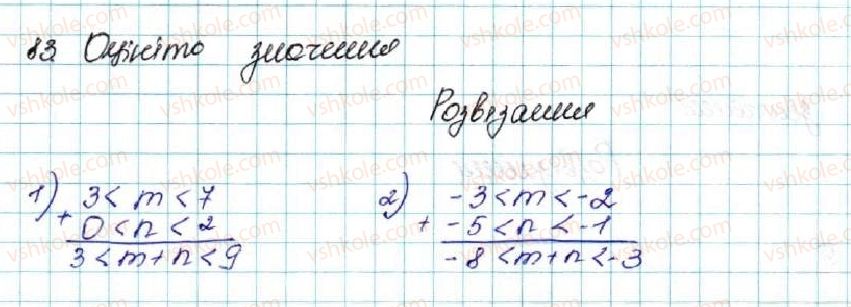 83. Оцініто значення
Розвязання
1) 3 < m < 7
+ 0 < n < 2
3 < m + n < 9
2) -3 < m < -2
+ -5 < n < -1
-8 < m + n < -3